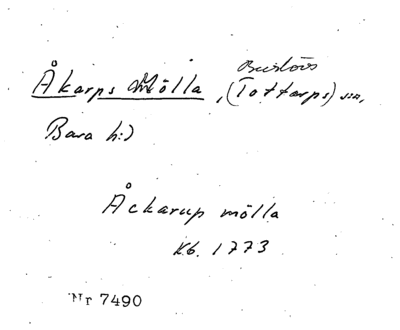 Burlövs
Åkarps Mölla, (Tottarps) sn,
Bara h:d
Åckarup mölla
Kb. 1773
Nr 7490